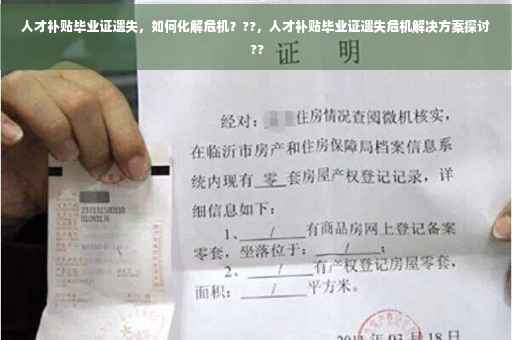 人才补贴毕业证遗失，如何化解危机？??，人才补贴毕业证遗失危机解决方案探讨
??
证 明
经对：住房情况查阅微机核实，
在临沂市房产和住房保障局档案信息系
统内现有 零 套房屋产权登记记录，详
细信息如下：
1、 / 有商品房网上登记备案
零套，坐落位于： / ；
2、 / 有产权登记房屋零套，
面积： / 平方米。
03月18日